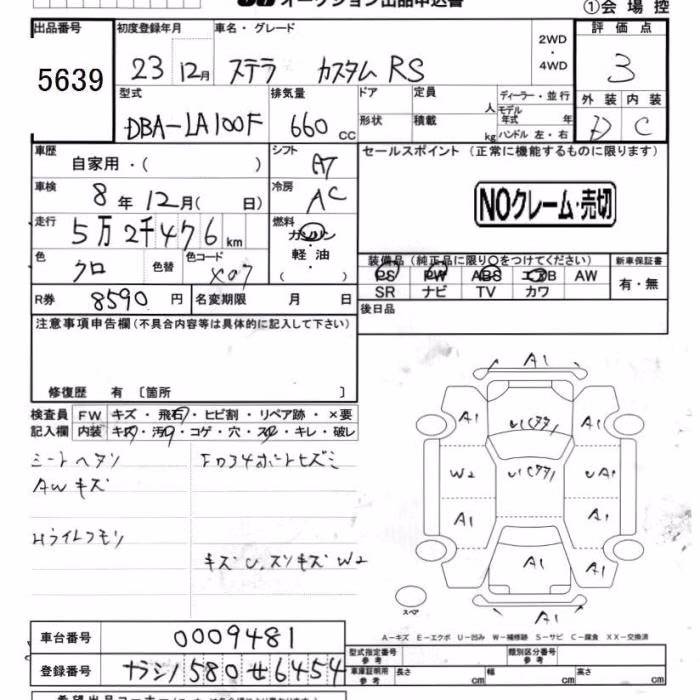 オークション出品申込書
①会場控
出品番号 初度登録年月 車名・グレード 2WD・4WD 評価点
5639 23 12月 ステラ カスタムRS 3
型式 排気量 ドア 定員 人 ディーラー・並行 外装 内装
DBA-LA100F 660cc 形状 積載 kg モデル年式 年 ハンドル 左・右 D C
車歴 自家用・( ) シフト AT セールスポイント (正常に機能するものに限ります)
車検 8年12月( 日) 冷房 AC NOクレーム・売切
走行 5万2千476km 燃料 ガソリン・軽油・( )
色 クロ 色替 色コード X07 装備品 (純正品に限り○をつけてください) 新車保証書
PS PW ABS エアB AW 有・無
SR ナビ TV カワ
R券 8590円 名変期限 月 日 後日品
注意事項申告欄(不具合内容等は具体的に記入して下さい)
修復歴 有〔箇所 〕
検査員 FW キズ・飛石・ヒビ割・リペア跡・×要
記入欄 内装 キズ・汚れ・コゲ・穴・スレ・キレ・破レ
シートヘタリ
AWキズ
Hライトクモリ
キズU、スリキズW2
A1
A1 A1
W2 UA1
A1 A1
A1 A1
A1
スペア
A-キズ E-エクボ U-凹み W-補修跡 S-サビ C-腐食 XX-交換済
車台番号 0009481 型式指定番号 参考 類別区分番号 参考
登録番号 ナラシノ580せ6454 車庫証明用 参考 長さ cm 幅 cm 高さ cm